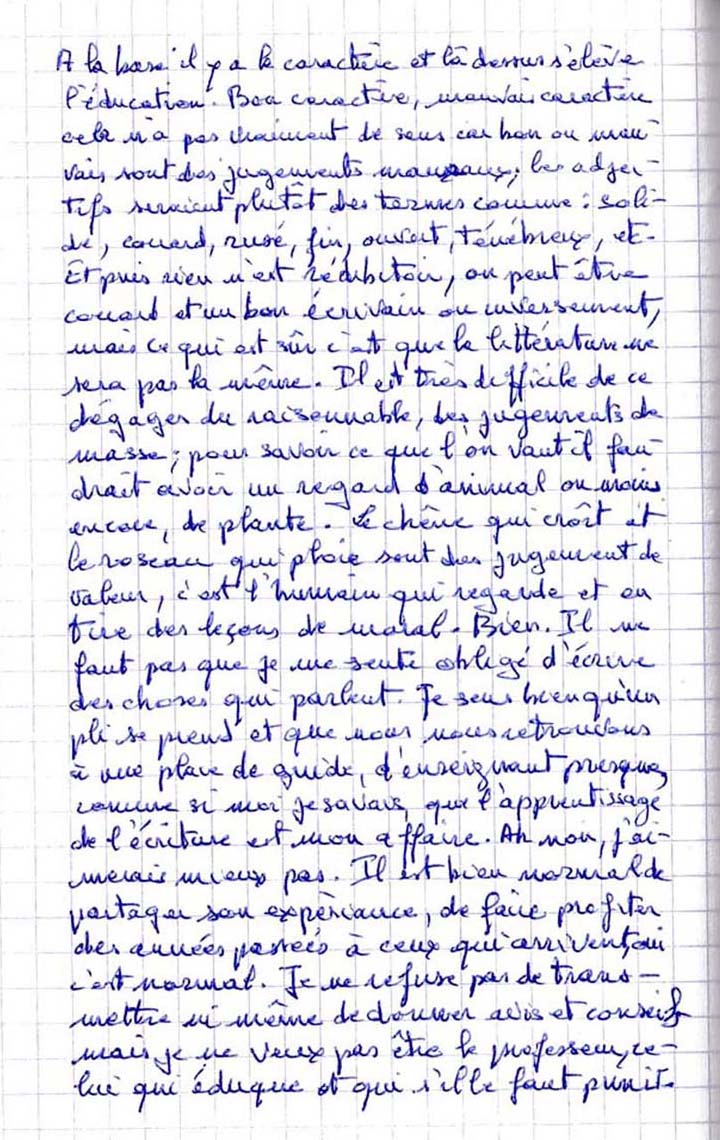 A la base il y a le caractère et là dessus s'élève
l'éducation. Bon caractère, mauvais caractère
cela n'a pas vraiment de sens car bon ou mau-
vais sont des jugements moraux, les adjec-
tifs seraient plutôt des termes comme : soli-
de, couard, rusé, fin, ouvert, ténébreux, etc.
Et puis rien n'est rédibitoir, on peut être
couard et un bon écrivain ou inversement,
mais ce qui est sûr c'est que la littérature ne
sera pas la même. Il est très difficile de ce
dégager du raisonnable, des jugements de
masse ; pour savoir ce que l'on vaut il fau-
drait avoir un regard d'animal ou moins
encore, de plante. Le chêne qui croît et
le roseau qui ploie sont des jugement de
valeur, c'est l'humain qui regarde et en
tire des leçons de moral. Bien. Il ne
faut pas que je me sente obligé d'écrire
des choses qui parlent. Je sens bien qu'un
pli se prend et que nous nous retrouvons
à une place de guide, d'enseignant presque,
comme si moi je savais, que l'apprentissage
de l'écriture est mon affaire. Ah non, j'ai-
merais mieux pas. Il est bien normal de
partager son expérience, de faire profiter
des années passées à ceux qui arrivent, oui
c'est normal. Je ne refuse pas de trans-
mettre ni même de donner avis et conseils
mais je ne veux pas être le professeur, ce-
lui qui éduque et qui s'il le faut punit.